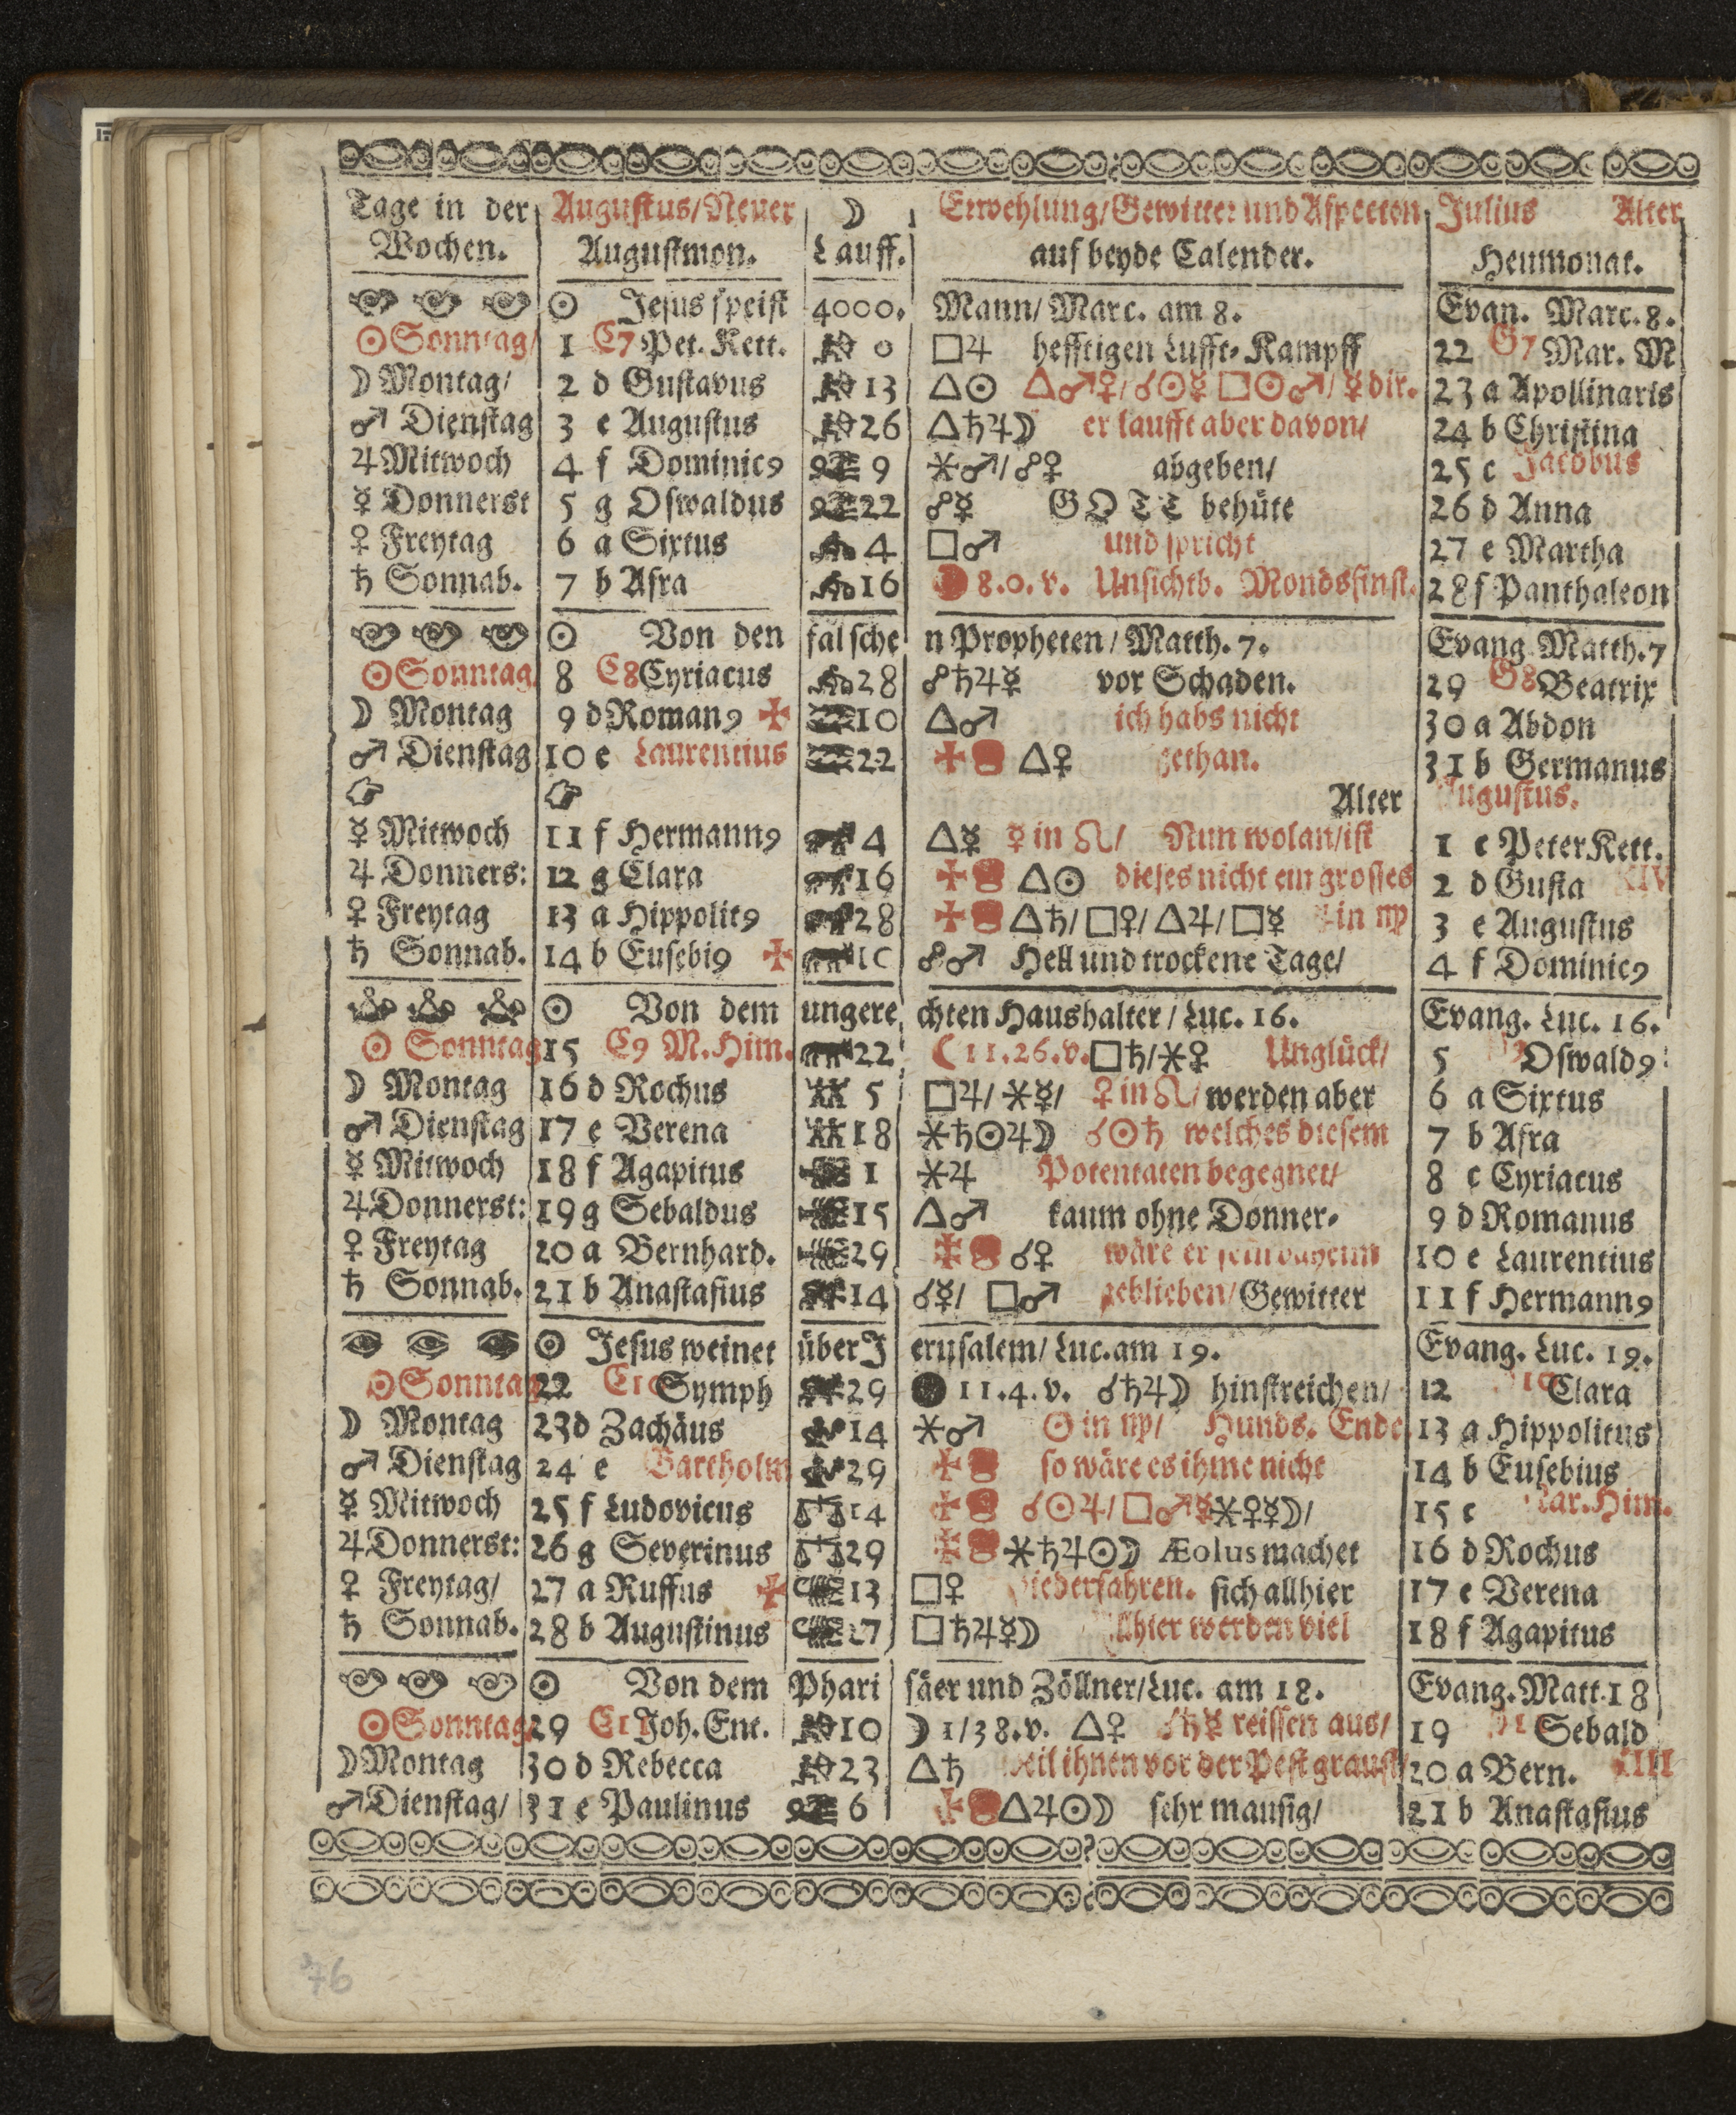 Tage in der Augustus/Neuer ☽ Erwehlung/Gewitter und Aspecten Julius Alter
Wochen. Augustmon. Lauff. auf beyde Calender. Heumonat.
☉ Jesus speist 4000. Mann/ Marc. am 8. Evan. Marc. 8.
☉ Sonntag/ 1 C7 Pet. Kett. 0 □♃ hefftigen Lufft-Kampff 22 G7 Mar. M
☽ Montag/ 2 d Gustavus 13 △☉ △♂♀/☌☉☿ □☉♂/ ☿ dir. 23 a Apollinaris
♂ Dienstag 3 e Augustus 26 △♄♃☽ er laufft aber davon/ 24 b Christina
♃ Mitwoch 4 f Dominic9 9 ⚹♂/☍♀ abgeben/ 25 c Jacobus
☿ Donnerst 5 g Oswaldus 22 ☍☿ GOTT behüte 26 d Anna
♀ Freytag 6 a Sixtus 4 □♂ und spricht 27 e Martha
♄ Sonnab. 7 b Afra 16 8.0.v. Unsichtb. Mondsfinst. 28 f Panthaleon
☉ Von den falschen Propheten/ Matth. 7. Evang Matth. 7
☉ Sonntag. 8 C8 Cyriacus 28 ☍♄♃☿ vor Schaden. 29 G8 Beatrix
☽ Montag 9 d Roman9 ✠ 10 △♂ ich habs nicht 30 a Abdon
♂ Dienstag 10 e Laurentius 22 ✠ △♀ gethan. 31 b Germanus
Alter Augustus.
☿ Mitwoch 11 f Hermann9 4 △☿ ☿ in ♌/ Nun wolan/ist 1 c Peter Kett.
♃ Donners: 12 g Clara 16 ✠ △☉ dieses nicht ein grosses 2 d Gusta XIV
♀ Freytag 13 a Hippolit9 28 ✠ △♄/□♀/△♃/□☿ ♃ in ♍ 3 e Augustus
♄ Sonnab. 14 b Eusebi9 ✠ 10 ☍♂ Hell und trockene Tage/ 4 f Dominic9
☉ Von dem ungerechten Haushalter/ Luc. 16. Evang. Luc. 16.
☉ Sonntag 15 C9 M. Him. 22 ☾ 11.26.v. □♄/⚹♀ Unglück/ 5 Oswald9
☽ Montag 16 d Rochus 5 □♃/ ⚹☿/ ♀ in ♌/ werden aber 6 a Sixtus
♂ Dienstag 17 e Verena 18 ⚹♄☉♃☽ ☌☉♄ welches diesem 7 b Afra
☿ Mitwoch 18 f Agapitus 1 ⚹♃ Potentaten begegnet/ 8 c Cyriacus
♃ Donnerst: 19 g Sebaldus 15 △♂ kaum ohne Donner- 9 d Romanus
♀ Freytag 20 a Bernhard. 29 ✠ ☌♀ wäre er fein daheim 10 e Laurentius
♄ Sonnab. 21 b Anastasius 14 ☌☿/ □♂ geblieben/ Gewitter 11 f Hermann9
☉ Jesus weinet über Jerusalem/ Luc. am 19. Evang. Luc. 19.
☉ Sonntag 22 C10 Symph 29 ● 11.4.v. ☌♄♃☽ hinstreichen/ 12 Clara
☽ Montag 23 d Zachäus 14 ⚹♂ ☉ in ♍/ Hunds. Ende 13 a Hippolitus
♂ Dienstag 24 e Bartholm 29 ✠ so wäre es ihme nicht 14 b Eusebius
☿ Mitwoch 25 f Ludovicus 14 ✠ ☌☉♃/□♂☿ ⚹♀☿☽/ 15 c Mar. Him.
♃ Donnerst: 26 g Severinus 29 ✠ ⚹♄♃☉☽ Æolus machet 16 d Rochus
♀ Freytag/ 27 a Ruffus ✠ 13 □♀ wiederfahren. sich allhier 17 e Verena
♄ Sonnab. 28 b Augustinus 27 □♄♃☿☽ Allhier werden viel 18 f Agapitus
☉ Von dem Pharisäer und Zöllner/ Luc. am 18. Evang. Matt. 18
☉ Sonntag. 29 C11 Joh. Ent. 10 ☽ 1/38.v. △♀ ☌♄☿ reissen aus/ 19 Sebald
☽ Montag 30 d Rebecca 23 △♄ weil ihnen vor der Pest graust/ 20 a Bern. XIII
♂ Dienstag/ 31 e Paulinus 6 ✠ △♃☉☽ sehr mausig/ 21 b Anastasius
76